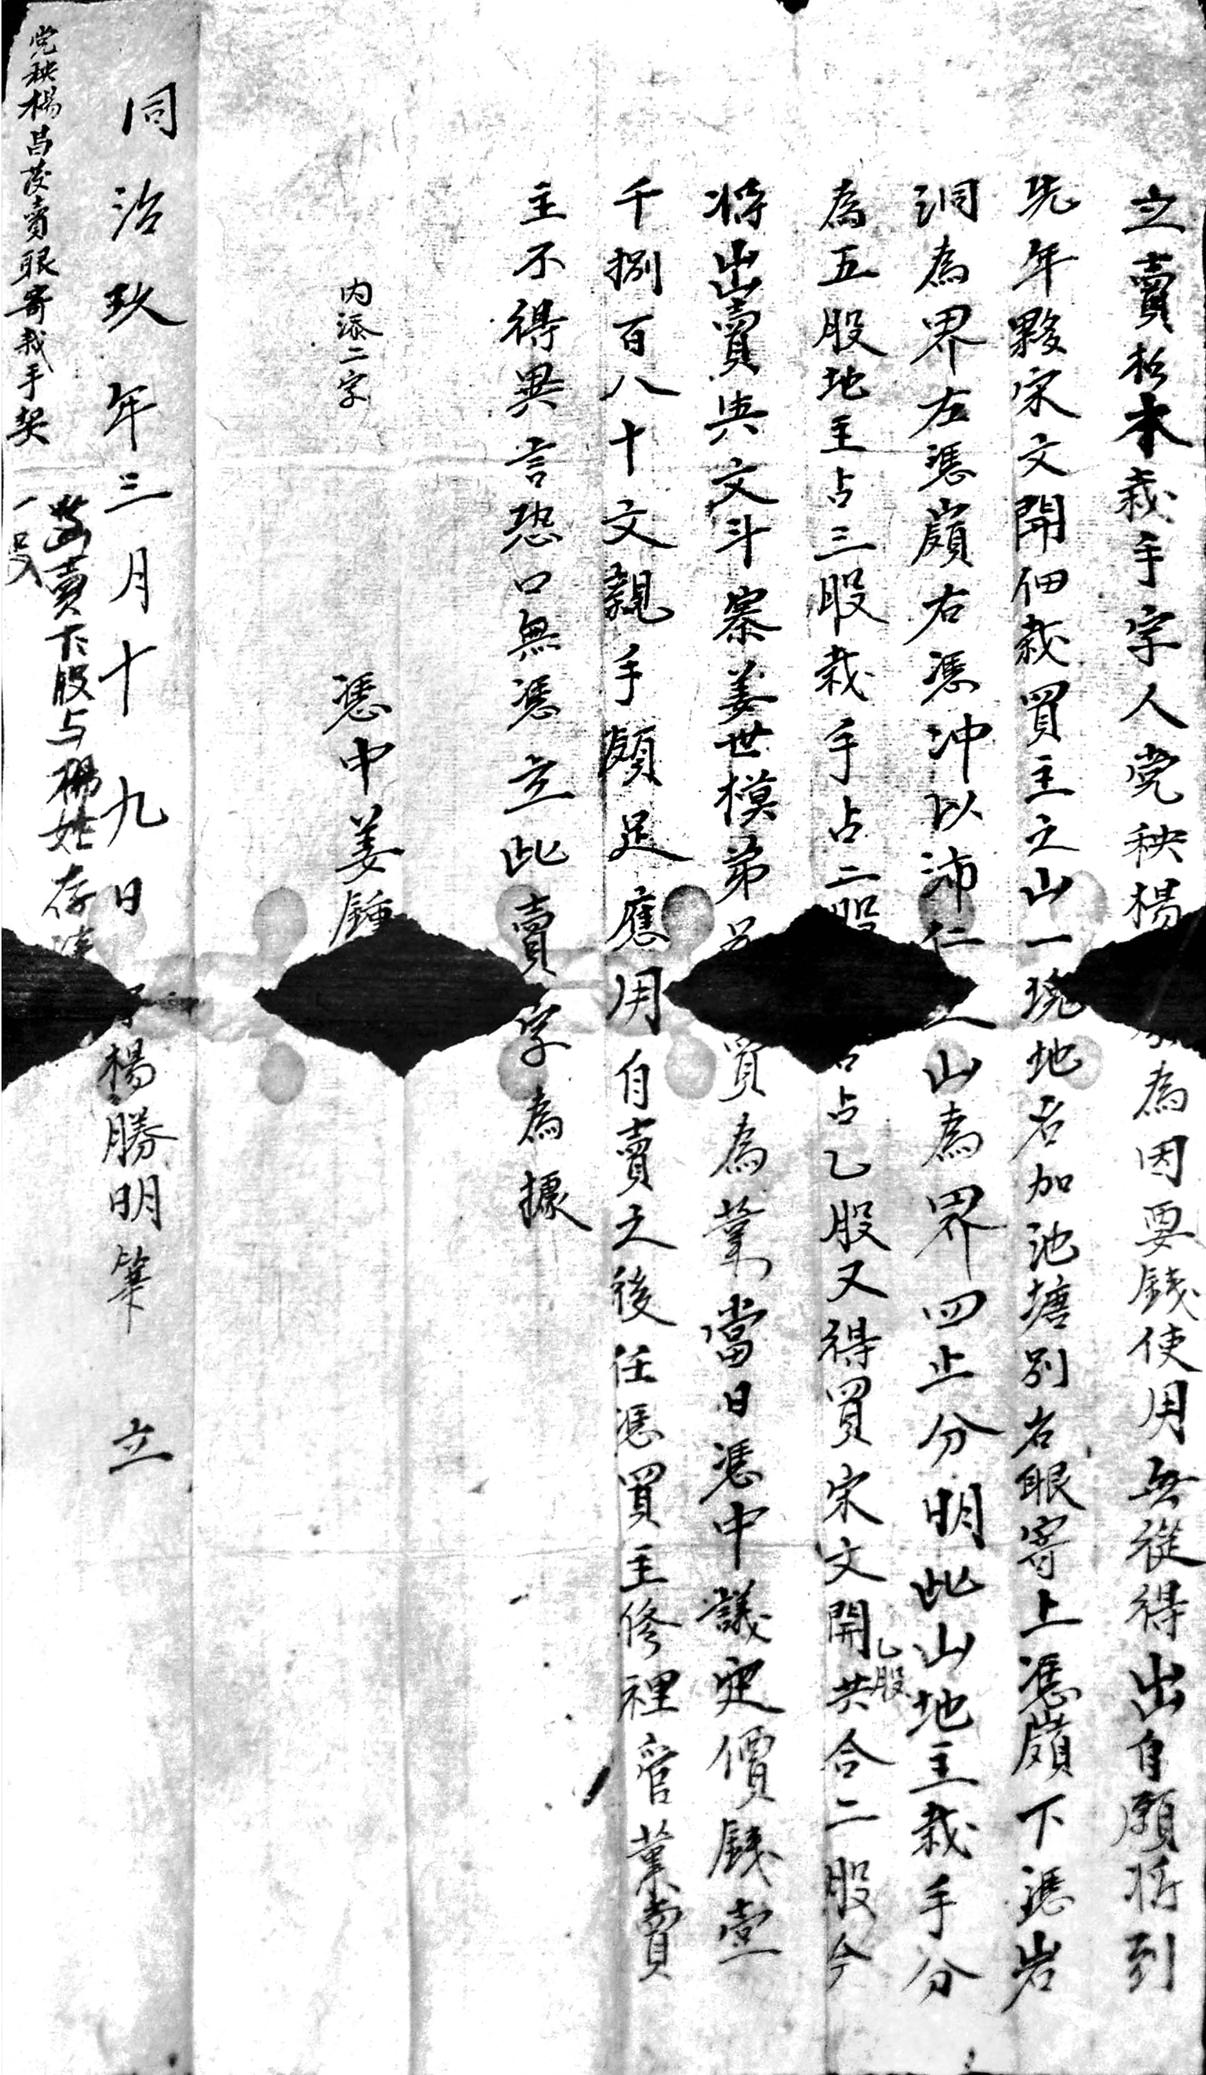 立賣杉木栽手字人党秧楊為因要錢使用無從得出自願將到
先年夥宋文開佃栽買主之山一塊地名加池塘別名眼寄上憑嶺下憑岩
洞為界左憑嶺右憑沖以沛仁之山為界四止分明此山地主栽手分
為五股地主占三股栽手占二股占乙股又得買宋文開乙股共合二股今
將出賣與文斗寨姜世模弟兄買為業當日憑中議定價錢壹
千捌百八十文親手領足應用自賣之後任憑買主修理管業賣
主不得異言恐口無憑立此賣字為據
內添二字
憑中姜鍾
同治玖年三月十九日楊勝明筆立
党秧楊昌茂賣眼寄栽手契
賣下股与楊姓存